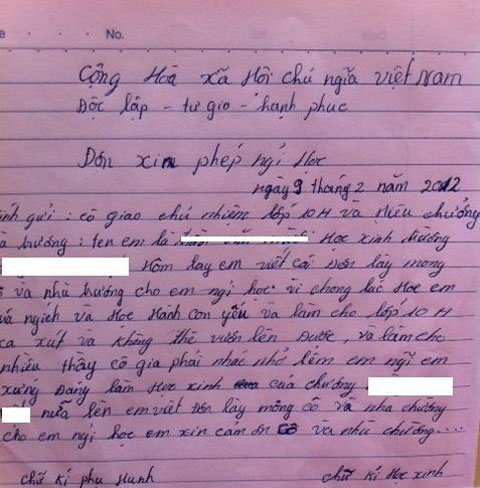 No.
Cộng Hoà xã Hôi chú ngĩa việt Nam
Dộc lập - tự gio - hạnh phuc
Dón xin phép ngỉ Học
ngày 9 tháng 2 năm 2012
ính gửi : cô giao chú nhiệm lớp 10 H và Hiêu chưởng
à trương : ten em là Học xinh trường
Hôm lay em viết cái Đơn lày mong
ô và nhà trương cho em ngỉ học vì chong lúc Hoc em
và ngịch và Học Hành con yếu và làm cho lớp 10 H
ca xút và không thê vươn lên Được, và làm cho
nhiêu thầy cô gia phải nhác nhở lêm em ngĩ em
xứng Đáng làm Học xinh của chương
nữa lên em viết Đơn lay mông cô và nha chương
cho em ngỉ học em xin cảm ơn cô va nhà chương...
chữ kí phu Hunh
chữ kí Học xinh